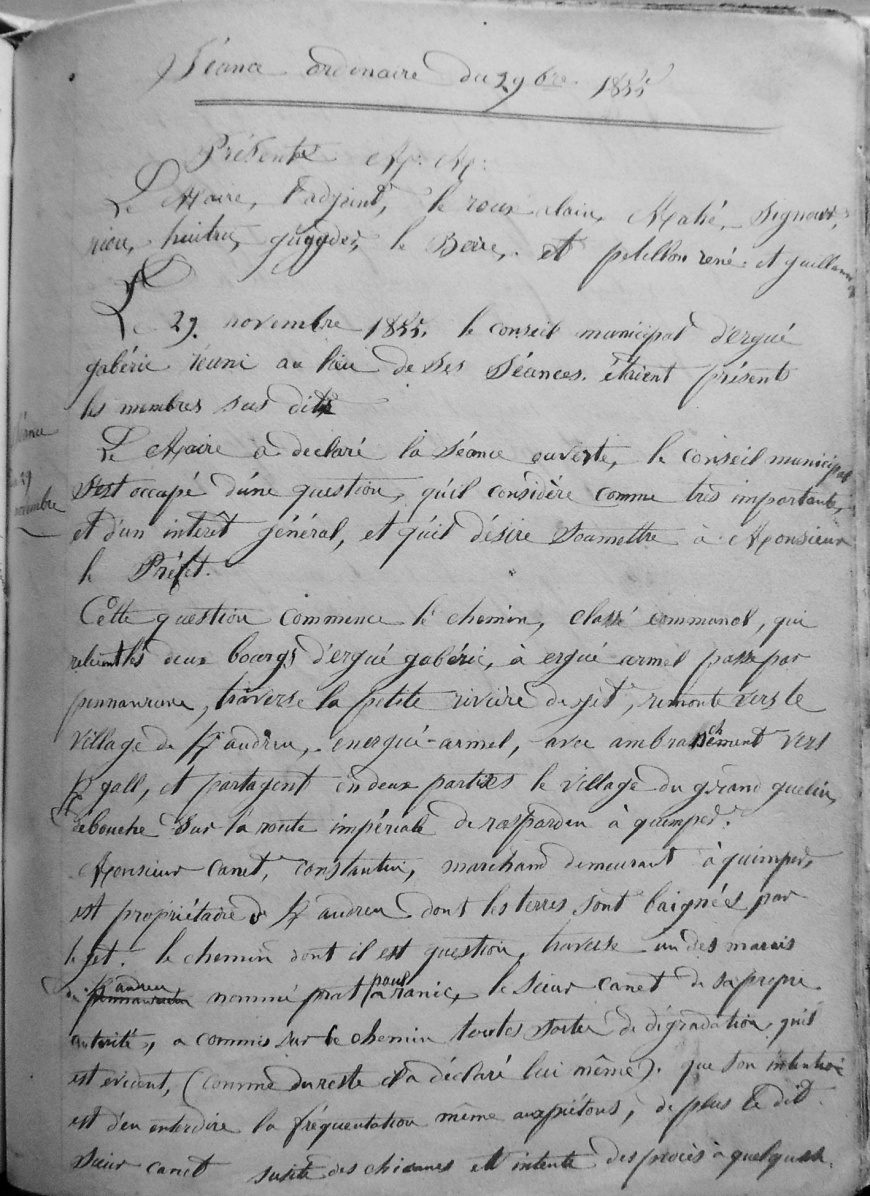 Séance ordinaire du 29 bre 1855
Présents M. M.
Le Maire, l'adjoint, le roux alain, Mahé, Signour,
niou, huitric, guyader, le Berre, et petillon rené et guillaume
Le 29 novembre 1855, le conseil municipal d'ergué
gabéric réuni au lieu de ses Séances. étaient présents
les membres sus dits
Séance
du 29
novembre
Le Maire a déclaré la séance ouverte, le conseil municipal
s'est occupé d'une question, qu'il considère comme très importante,
et d'un intérêt général, et qu'il désire soumettre à Monsieur
le Préfet.
Cette question commence le chemin, classé communal, qui
relient les deux bourgs d'ergué gabéric, à ergué armel passe par
pennanrun, traverse la petite rivière du jet, remonte vers le
village de K/andreu, en ergué-armel, avec ambranchement vers
K/gall, et partagent en deux parties le village du grand guelin,
débouche sur la route impériale de rasporden à quimper.
Monsieur Canet, constantin, marchand demeurant à quimper,
est propriétaire de K/andreu dont les terres sont baignées par
le jet. le chemin dont il est question, traverse un des marais
de K/andreu nommé prat poul ranic, le sieur canet de sa propre
autorité, a commis sur le chemin toutes sorte de dégradation, qu'il
est évident, (comme du reste il l'a déclaré lui même). que son intention
est d'en interdire la fréquentation même aux piétons, de plus le dit
sieur canet susite des chicanes et intente des procès à quelques